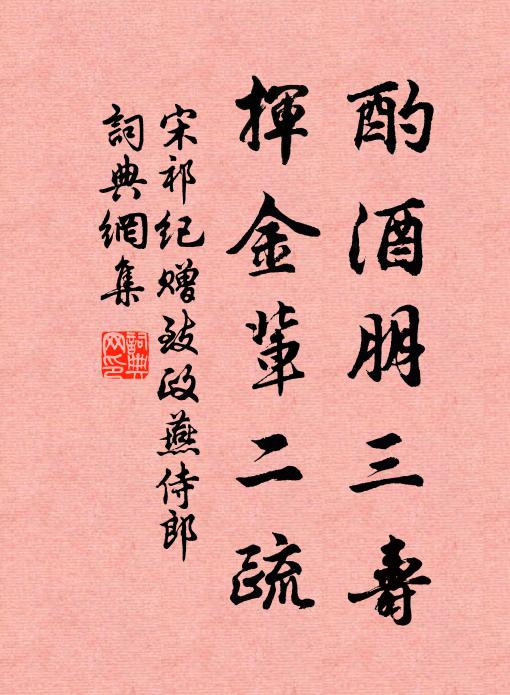 酌酒朋三壽
揮金輩二疏
宋祁紀贈致政燕侍郎
詞典網集
詞典網印